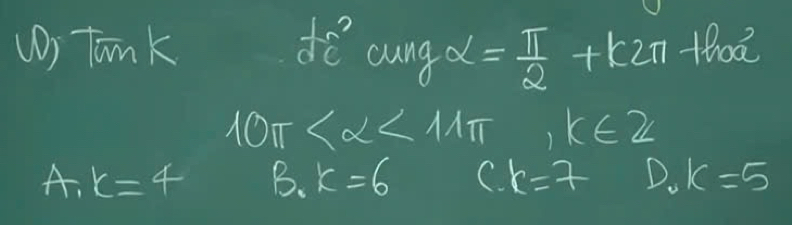 VD) Tìm k để cung α = π/2 + k2π thoả
10π < α < 11π , k ∈ Z
A. k = 4 B. k = 6 C. k = 7 D. k = 5